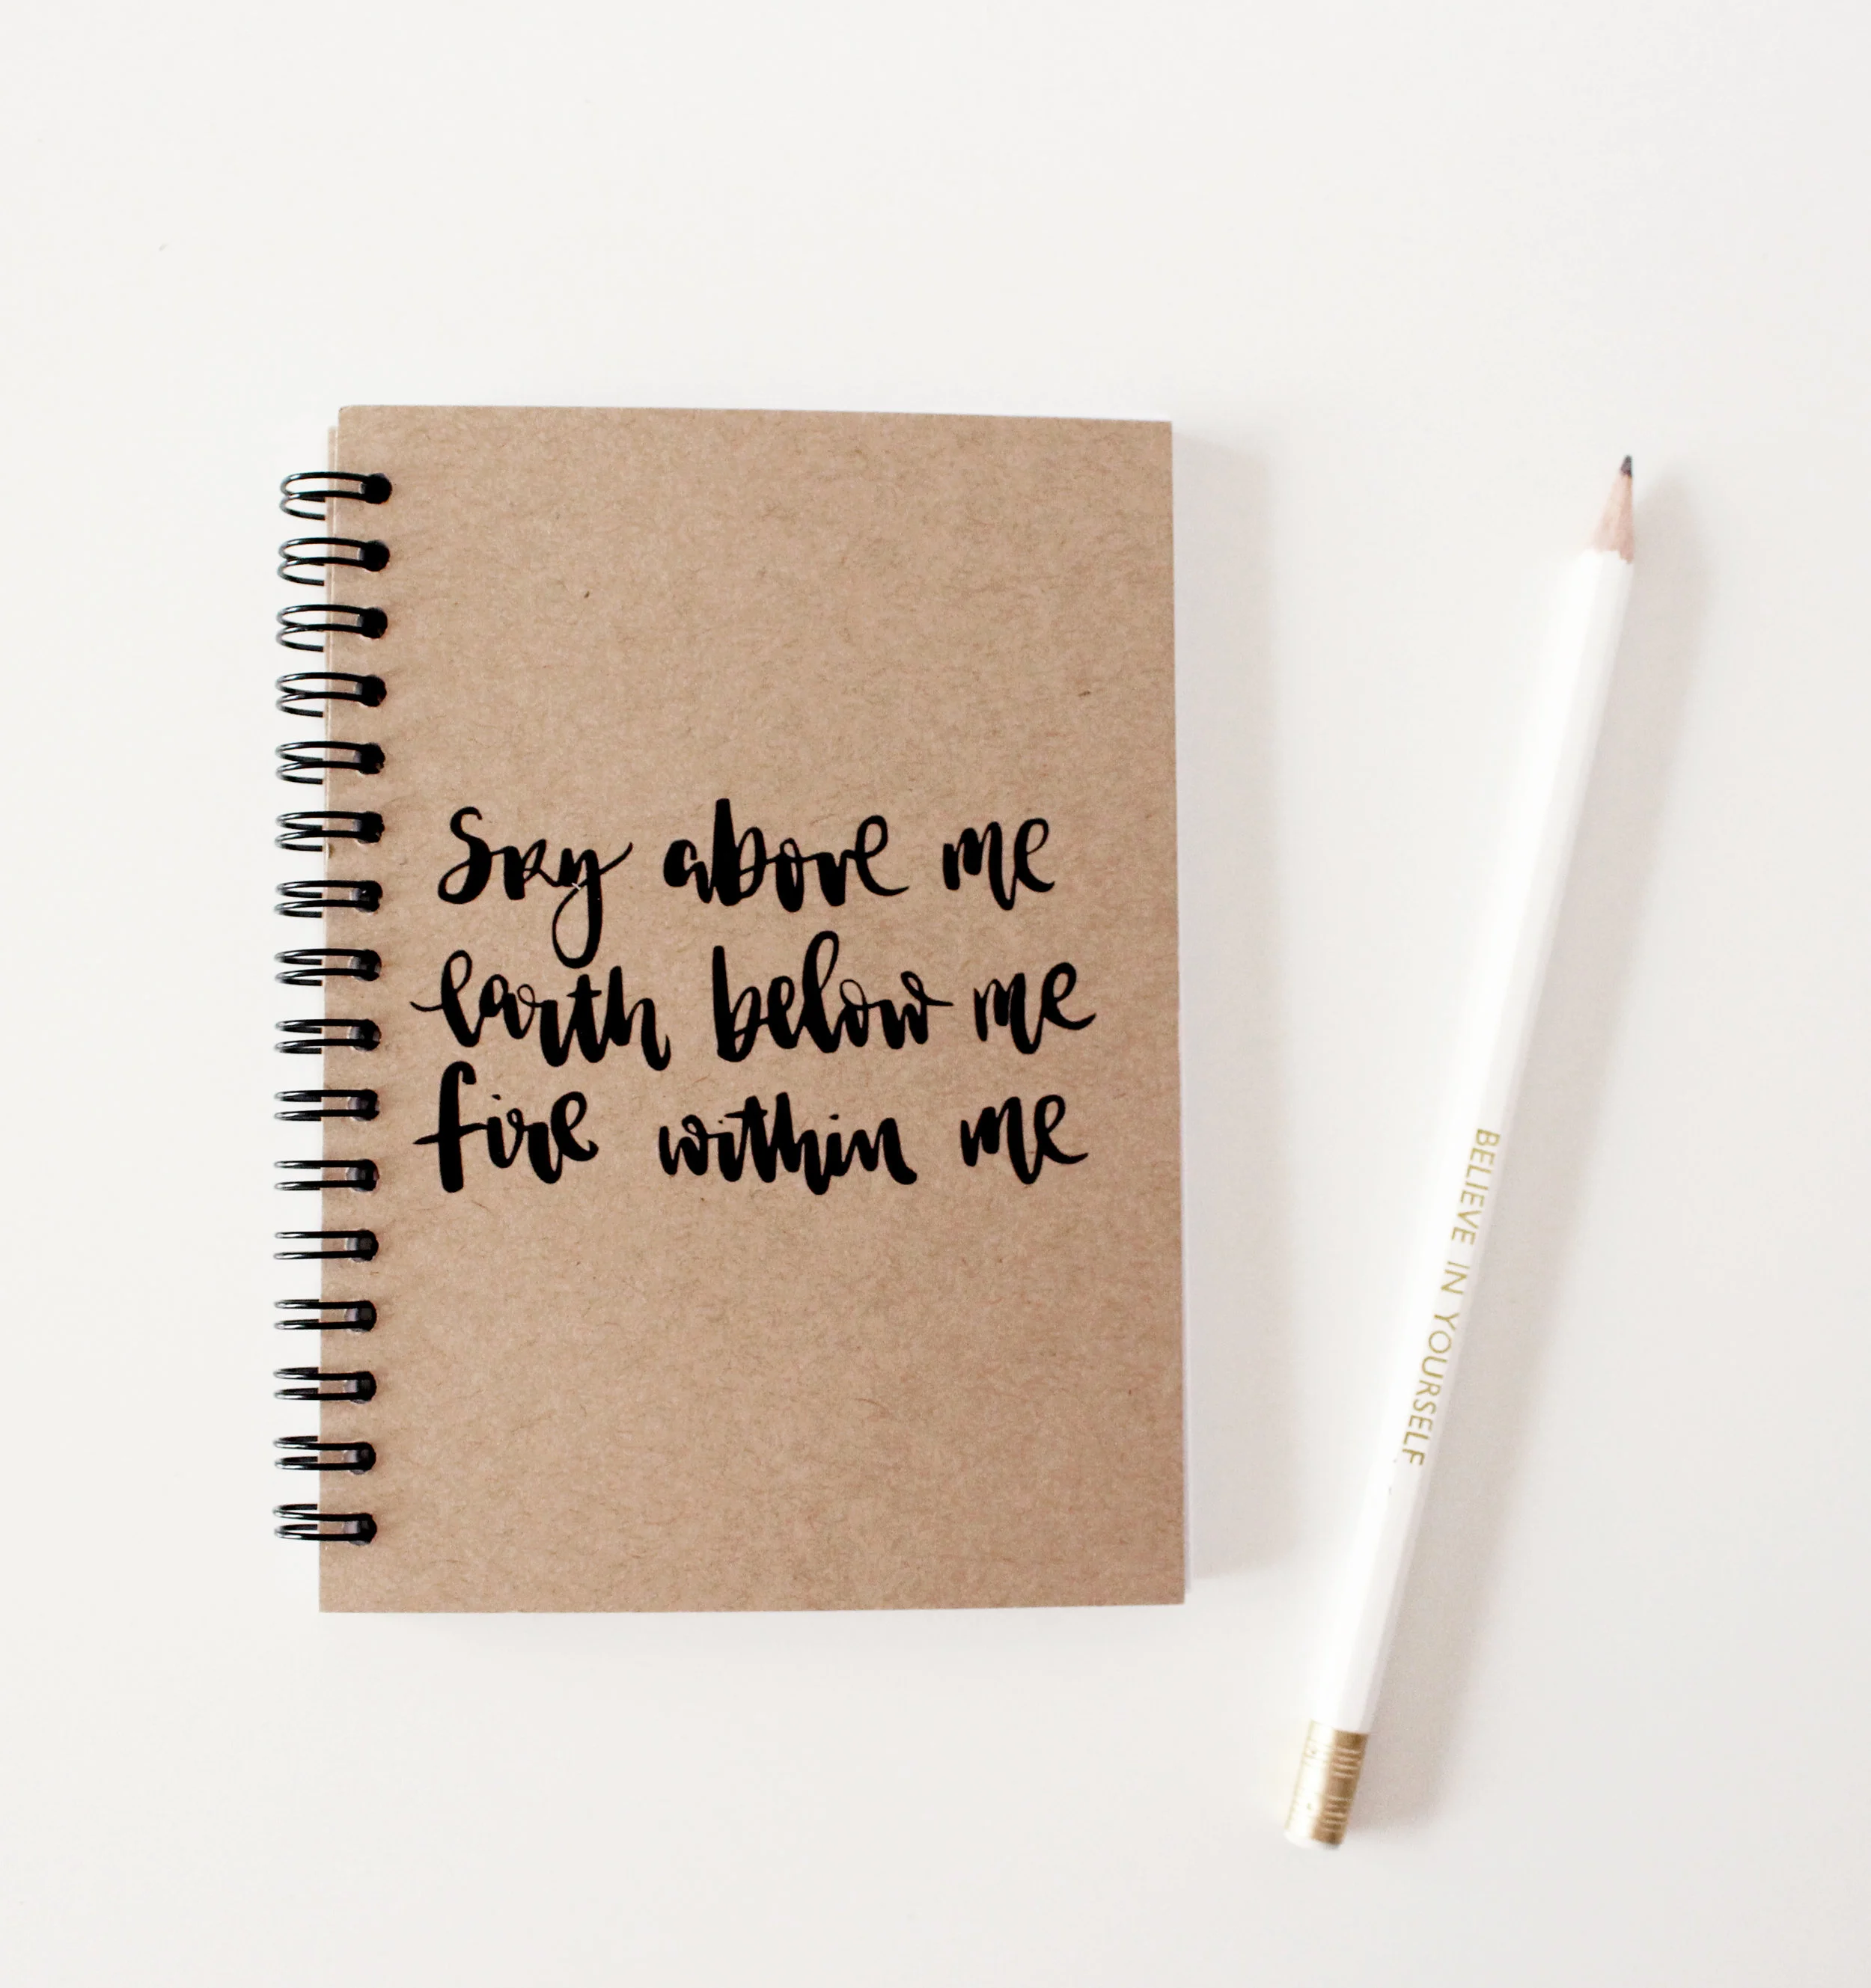 Sky above me
earth below me
fire within me
BELIEVE IN YOURSELF